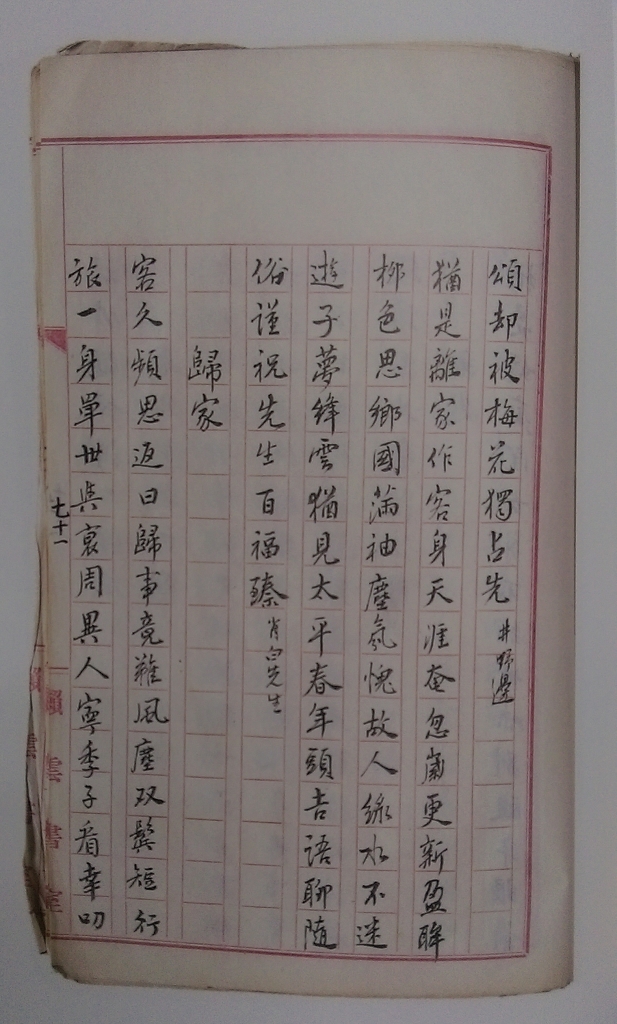 頌却被梅花獨占先井邊
猶是離家作客身天涯奄忽嵗更新盈眸
柳色思鄉國滿袖塵氛愧故人綠水不迷
遊子夢絳雲猶見太平春年頭吉語聊隨
俗謹祝先生百福臻肖白先生
歸家
客久頻思返日歸事竟難風塵双鬓短行
旅一身單世與衰周異人寧季子看幸叨
七十一
雲書室